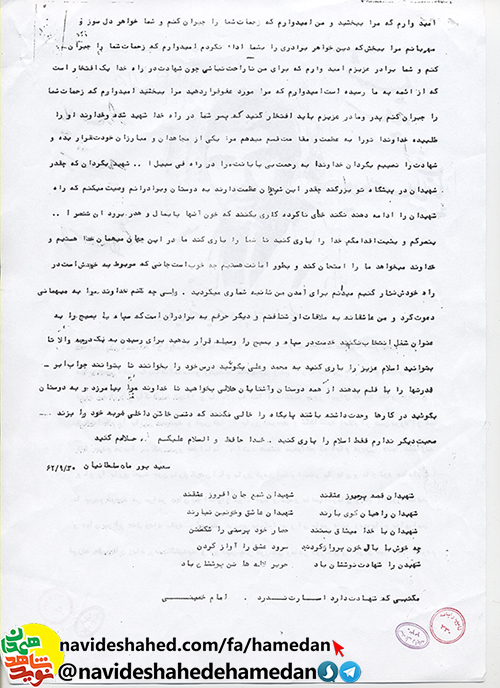 امید وارم که مرا ببخشید و من امیدوارم که زحمات شما را جبران کنم و شما خواهر دل سوز و
مهربانم مرا ببخش که دین خواهر برادری را بشما اداء نکردم امیدوارم که زحمات شما را جبران
کنم و شما برادر عزیزم امید وارم که برای من ناراحت نباشی چون شهادت در راه خدا یک افتخار است
که از ائمه به ما رسیده است امیدوارم که مرا مورد عفو قرار دهید مرا ببخشید امیدوارم که زحمات شما
را جبران کنم پدر و مادر عزیزم باید افتخار کنید که پسر شما در راه خدا شهید شده و خداوند او را
طلبیده خداوندا تو را به عظمت و مقامت قسم میدهم مرا یکی از مجاهدان و مبارزان خودت قرار بده و
شهادت را نصیبم بگردان خداوندا به رحمت بی پایانت مرا در راه فی سبیل ا .. شهید بگردان که چقدر
شهیدان در پیشگاه تو بزرگند چقدر این شهیدان عظمت دارند به دوستان و برادرانم وصیت میکنم که راه
شهیدان را ادامه دهند نکند خدای ناکرده کاری بکنند که خون آنها پایمال و هدر برود ان تنصرا ..
ینصرکم و یثبت اقدامکم خدا را یاری کنید تا شما را یاری کند ما در این جهان میهمان خدا هستیم و
خداوند میخواهد ما را امتحان کند و بطور امانت هستیم چه خوب است جانی که مربوط به خودش است در
راه خودش نثار کنیم میدانم برای آمدن من ثانیه شماری میکردید . ولی چه کنم خداوند مرا به میهمانی
دعوت کرد و من عاشقانه به ملاقات او شتافتم و دیگر حرفم به برادران است که سپاه یا بسیج را به
عنوان شغل انتخاب نکنند خدمت در سپاه و بسیج را وسیله قرار بدهید برای رسیدن به یک درجه والا تا
بتوانید اسلام عزیز را یاری کنید به محمد و علی بگوئید درس خود را بخوانند تا بتوانند جواب ابر -
قدرتها را با قلم بدهند از همه دوستان و آشنایان حلالی بخواهید تا خداوند مرا بیامرزد و به دوستان
بگوئید در کارها وحدت داشته باشند پایگاه را خالی نکنند که دشمن خائن داخلی ضربه خود را بزند ...
صحبت دیگر ندارم فقط اسلام را یاری کنید . خدا حافظ و السلام علیکم . . حلالم کنید
سعید پور ماه سلطانیان ۶۲/۹/۳۰
شهیدان قصه پرسوز عشقند شهیدان شمع جان افروز عشقند
شهیدان راهیان کوی یارند شهیدان عاشق و خونین تبارند
شهیدان با خدا میثاق بستند حصار خود پرستی را شکستن
چه خوش با بال خون پرواز کردند سرود عشق را آواز کردن
شهیدن را شهادت نوششان باد حریر لاله ها تن پوششان باد
مکتبی که شهادت دارد اسارت ندرد . امام خمینی
نوید شاهد همدان
navideshahed.com/fa/hamedan
@navideshahedehamedan